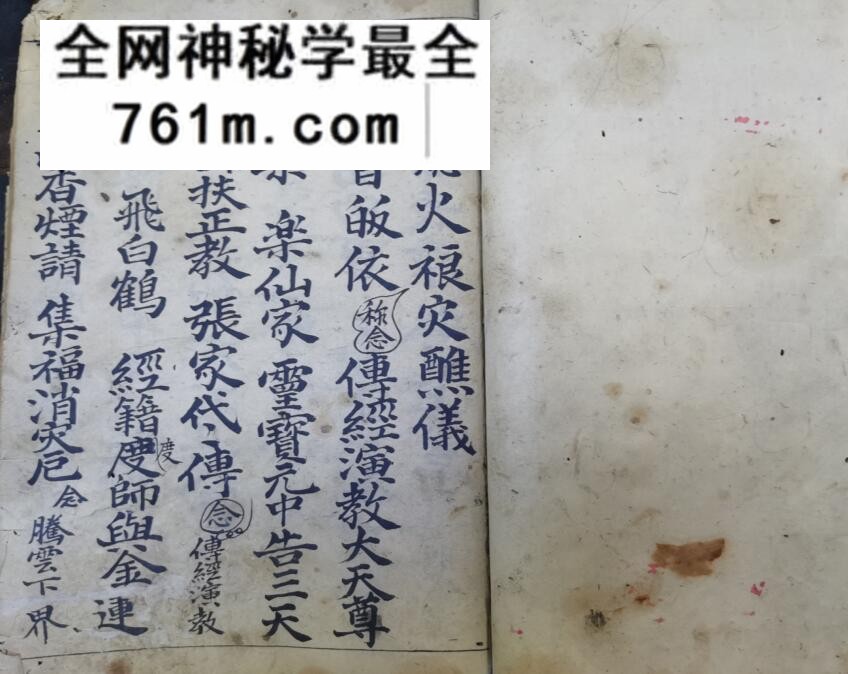 全网神秘学最全
761m.com
火禳灾醮儀
皈依 称念 傳經演教大天尊
楽仙家 靈寶元中告三天
扶正教 張家代々傳 念 傳經演教
飛白鶴 經籍度師與金 連 度
香煙請 集福消灾厄 念 騰雲下界